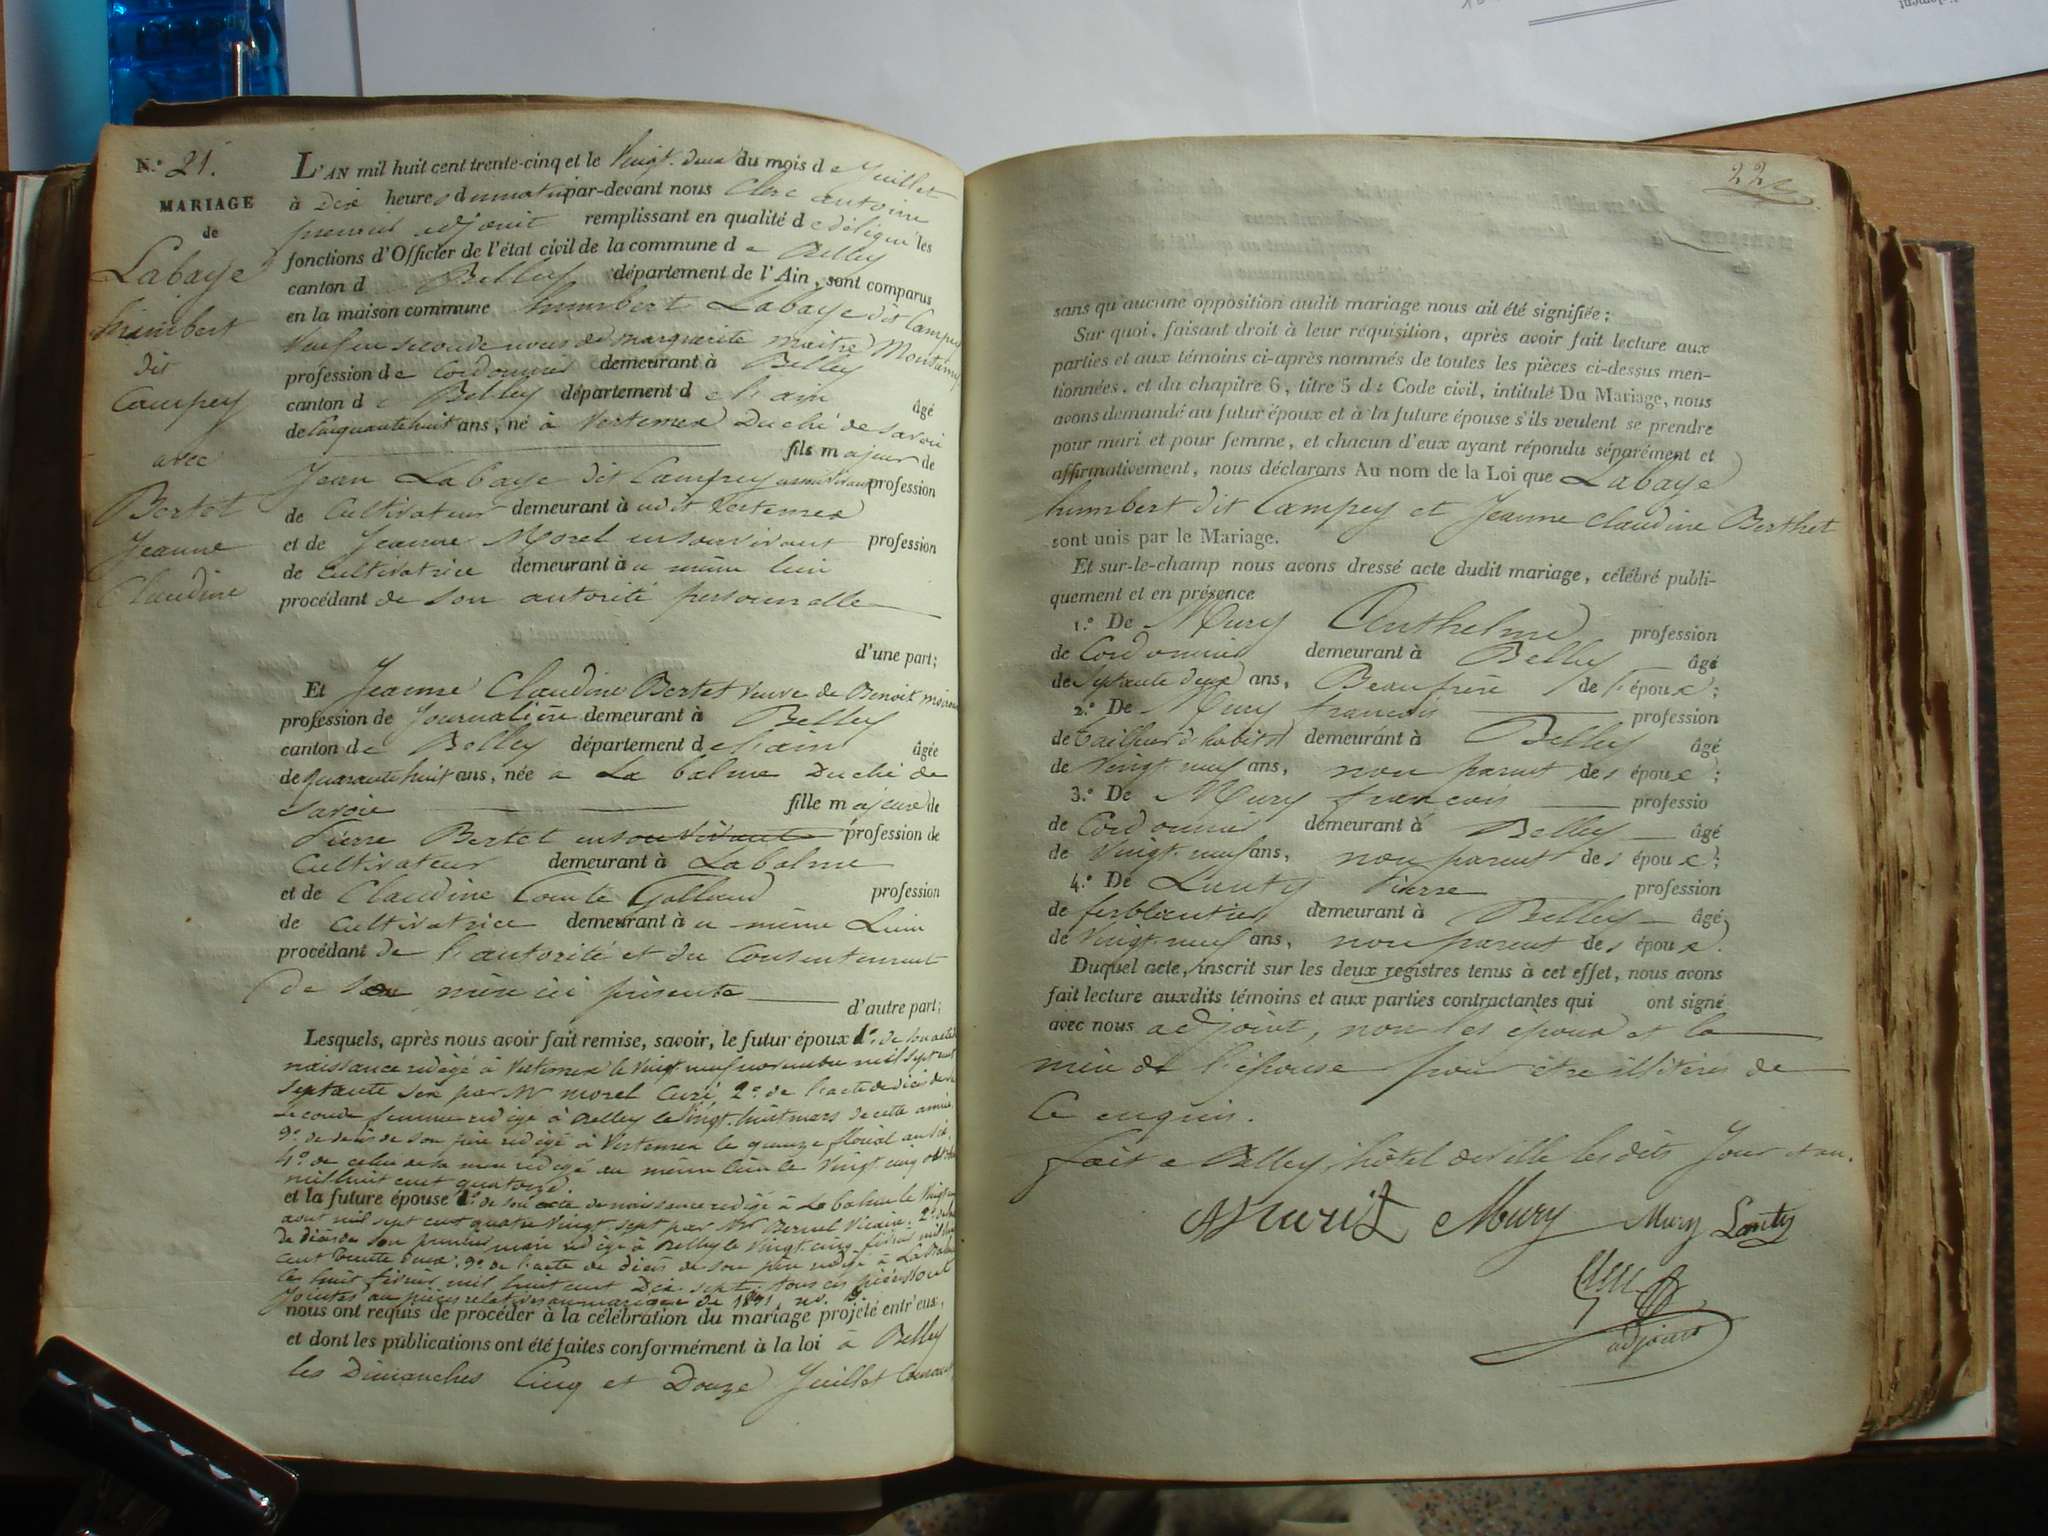 N.° 21.
MARIAGE
de
Labaye
humbert
dit
Campey
avec
Bertet
Jeanne
Claudine
L'AN mil huit cent trente-cinq et le Vingt-deux du mois de Juillet
à Dix heures du matin par-devant nous Clerc antoine
premier adjoint remplissant en qualité de délégué les
fonctions d'Officier de l'état civil de la commune de Belley
canton de Belley département de l'Ain, sont comparus
en la maison commune humbert Labaye dit Campey
Veuf en seconde noces de marguerite maitre Montanny
profession de Cordonnier demeurant à Belley
canton de Belley département de l'ain âgé
de Cinquante huit ans, né à Vertemex Duché de Savoie
fils majeur de
Jean Labaye dit Campey profession
de Cultivateur demeurant à udit Vertemex
et de Jeanne Morel insouvivant profession
de Cultivatrice demeurant à u même lieu
procédant de son autorité personnelle
d'une part;
Et Jeanne Claudine Bertet Veuve de Benoit
profession de Journalière demeurant à Belley
canton de Belley département de l'ain âgée
de quarante huit ans, née a La balme Duché de
Savoie fille majeure de
Pierre Bertet profession de
Cultivateur demeurant à La balme
et de Claudine Comte Golland profession
de Cultivatrice demeurant à u même Lieu
procédant de l'autorité et du Consentement
de sa mère ici présente d'autre part;
Lesquels, après nous avoir fait remise, savoir, le futur époux 1.° de son acte de
naissance rédigé à Vertemex le Vingt neuf novembre mil sept cent
septante six par Mr morel Curé, 2.° de l'acte de décès de sa
Seconde femme rédigé à Belley le Vingt-huit mars de cette année
3.° de décès de son père rédigé à Vertemex le quinze floréal an six
4.° de celui de sa mère rédigé au même lieu le Vingt cinq
mil huit cent quatorze
et la future épouse 1.° de son acte de naissance rédigé à La balme le Vingt
aout mil sept cent quatre Vingt sept par Mr Bernel Vicaire, 2.°
de décès de son premier mari rédigé à Belley le Vingt-cinq février mil huit
cent trente deux, 3.° de l'acte de décès de son père rédigé à La Balme
le huit février mil huit cent Dix sept; tous ces pièces sont
Jointes au pièces relatives au mariage de
nous ont requis de procéder à la célébration du mariage projeté entr'eux,
et dont les publications ont été faites conformément à la loi à Belley
les Dimanches Cinq et Douze Juillet Courant
22
sans qu'aucune opposition audit mariage nous ait été signifiée;
Sur quoi, faisant droit à leur réquisition, après avoir fait lecture aux
parties et aux témoins ci-après nommés de toutes les pièces ci-dessus men-
tionnées, et du chapitre 6, titre 5 du Code civil, intitulé Du Mariage, nous
avons demandé au futur époux et à la future épouse s'ils veulent se prendre
pour mari et pour femme, et chacun d'eux ayant répondu séparément et
affirmativement, nous déclarons Au nom de la Loi que Labaye
humbert dit Campey et Jeanne Claudine Berthet
sont unis par le Mariage.
Et sur-le-champ nous avons dressé acte dudit mariage, célébré publi-
quement et en présence
1.° De Mury Centhelme profession
de Cordonnier demeurant à Belley âgé
de septante deux ans, Beaufrère de l'époux;
2.° De Mury francois profession
de tailleur d'habits demeurant à Belley âgé
de Vingt-neuf ans, non parent des époux;
3.° De Mury francois professio
de Cordonnier demeurant à Belley âgé
de Vingt-neuf ans, non parent des époux;
4.° De Lenty Pierre profession
de ferblantier demeurant à Belley âgé
de Vingt-neuf ans, non parent des époux.
Duquel acte, inscrit sur les deux registres tenus à cet effet, nous avons
fait lecture auxdits témoins et aux parties contractantes qui ont signé
avec nous adjoint, non les époux et la
mère de l'épouse pour être illitérés de
Ce enquis.
fait a Belley, hôtel de ville les dits Jour et an.
Mury Mury Lenty
Clerc
adjoint